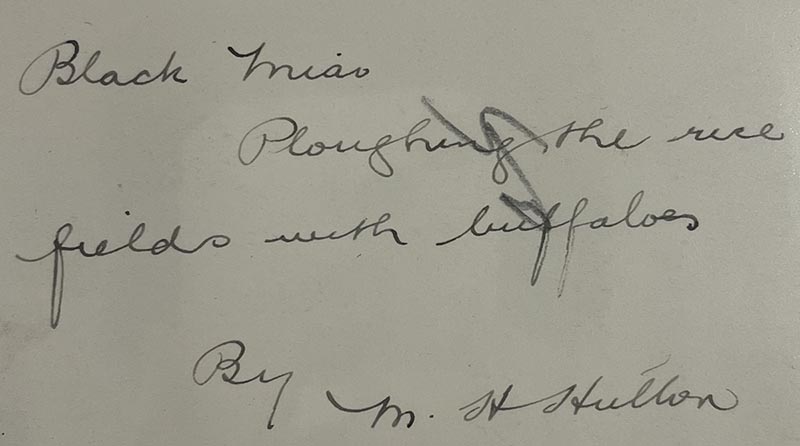 Black Miao
Ploughing the rice
fields with buffaloes
By M. H Hutton